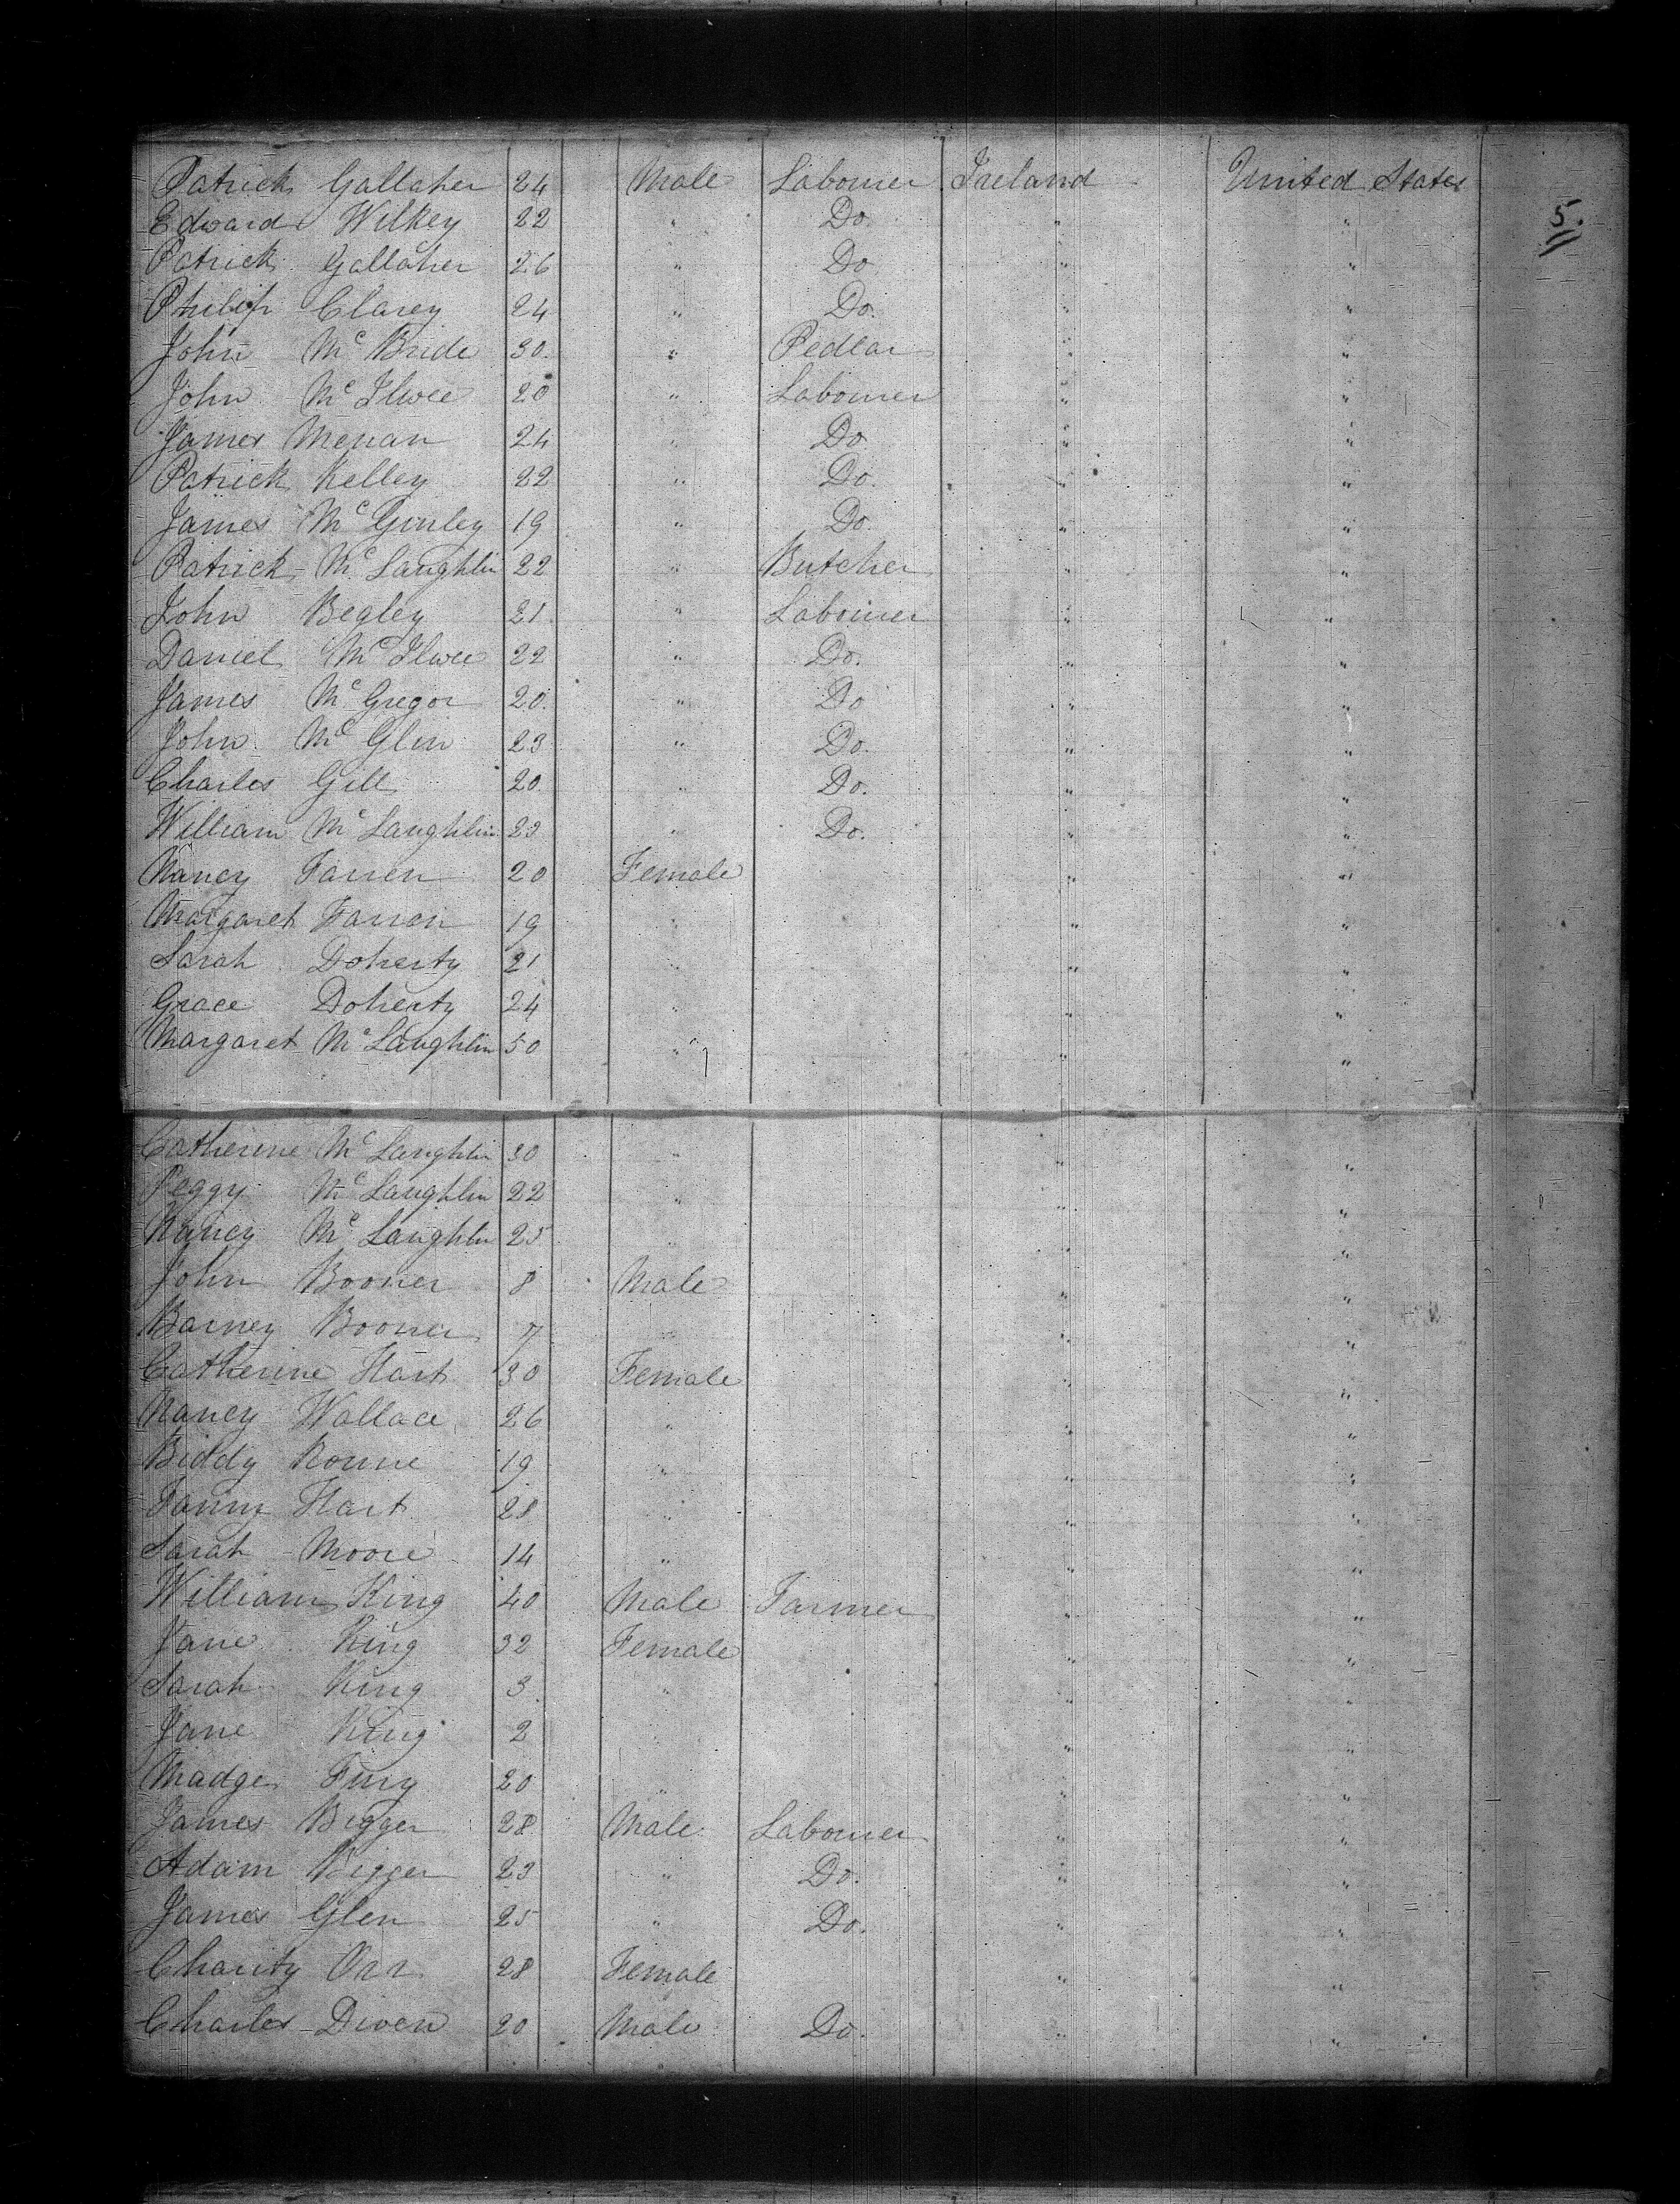 Patrick Gallaher 24 Male Labourer Ireland United States
Edward Wilkey 22 " Do " "
5.
Patrick Gallaher 26 " Do " "
Philip Clarey 24 " Do. " "
John Mc Bride 30. " Pedlar " "
John Mc Ilwee 20 " Labourer " "
James Menan 24 " Do " "
Patrick Kelley 22 " Do. " "
James Mc Ginley 19 " Do. " "
Patrick Mc Laughlin 22 " Butcher " "
John Begley 21 " Labourer " "
Daniel Mc Ilwee 22 " Do. " "
James Mc Gregor 20. " Do " "
John Mc Glin 23 " Do. " "
Charles Gill 20 " Do. " "
William Mc Laughlin 23 " Do. " "
Nancy Farren 20 Female " "
Margaret Farren 19 " " "
Sarah Doherty 21 " " "
Grace Doherty 24 " " "
Margaret Mc Laughlin 50 " " "
Catherine Mc Laughlin 30 " " "
Peggy Mc Laughlin 22 " " "
Nancy Mc Laughlin 25 " " "
John Booner 8 Male " "
Barney Booner 7 " " "
Catherine Hart 30 Female " "
Nancy Wallace 26 " " "
Biddy 19 " " "
Fanny Hart 28 " " "
Sarah Moore 14 " " "
William King 40 Male Farmer " "
Jane King 32 Female " "
Sarah King 3 " " "
Jane King 2 " " "
Madge 20 " " "
James Bigger 28 Male Labourer " "
Adam Bigger 23 " Do. " "
James Glen 25 " Do. " "
Charity Orr 28 Female " "
Charles Diven 20 Male Do. " "